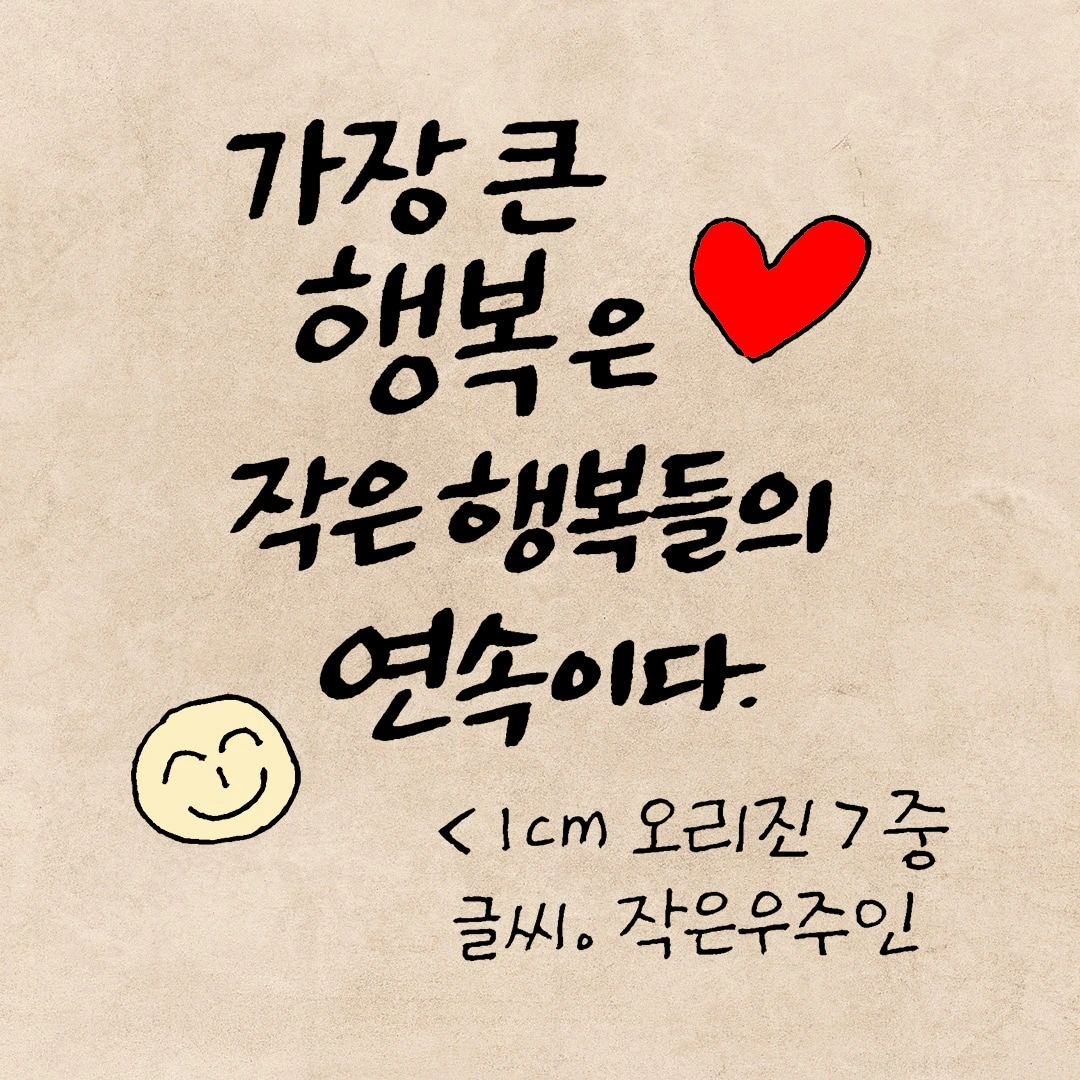 가장 큰
행복은
작은 행복들의
연속이다.
<1cm 오리진> 중
글씨。작은우주인